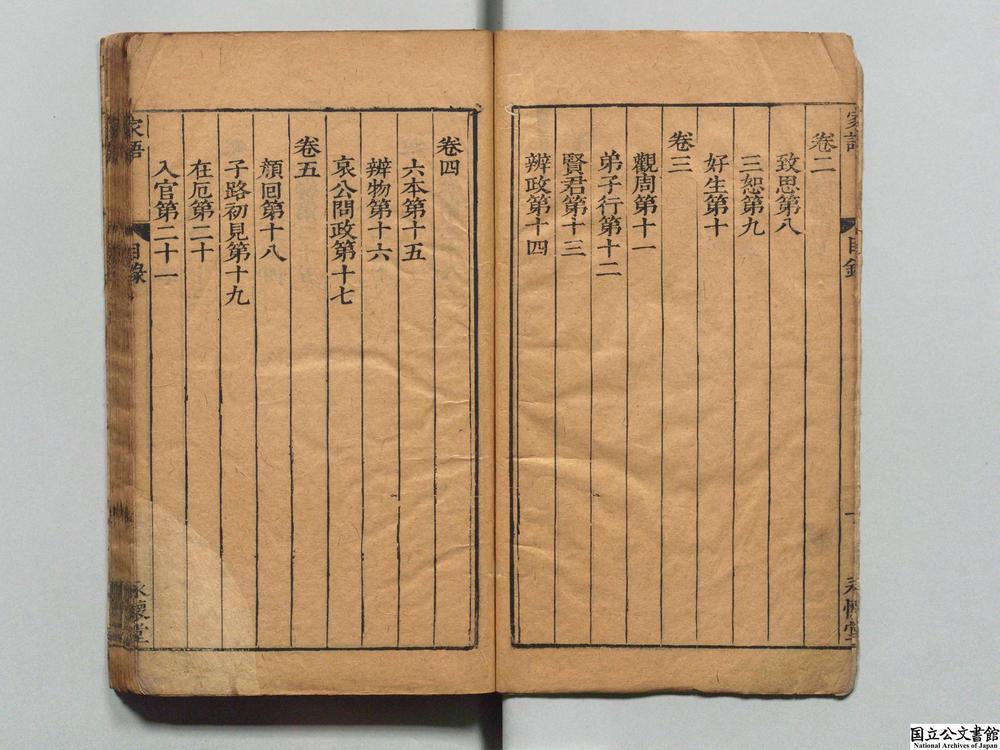 家語
目錄
一
永懷堂
卷二
致思第八
三恕第九
好生第十
卷三
觀周第十一
弟子行第十二
賢君第十三
辨政第十四
卷四
六本第十五
辨物第十六
哀公問政第十七
卷五
顏回第十八
子路初見第十九
在厄第二十
入官第二十一
家語
目錄
永懷堂
国立公文書館
National Archives of Japan